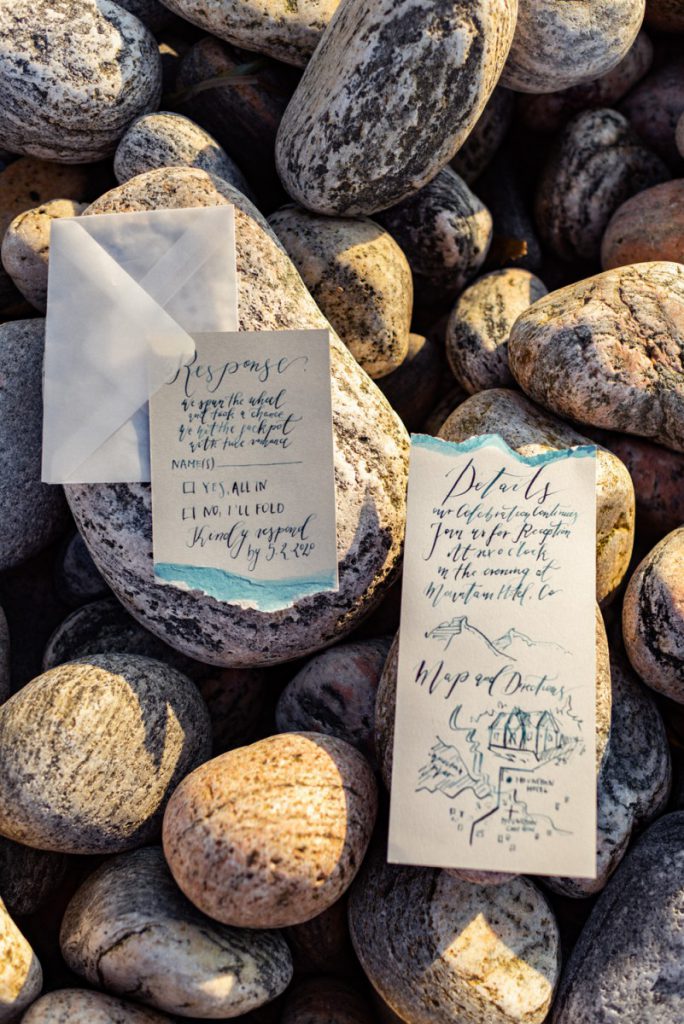 Response
we spun the wheel
and took a chance
We hit the jackpot
with true romance
NAME(S)
YES, ALL IN
NO, I'LL FOLD
Kindly respond
by 5.2.2020
Details
our Celebration Continues
Join us for Reception
At six o'clock
in the evening at
Mountain Hotel, Co
Map and Directions
MOUNTAIN
HOTEL